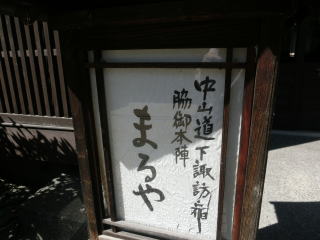 中山道下諏訪宿
脇御本陣
まるや